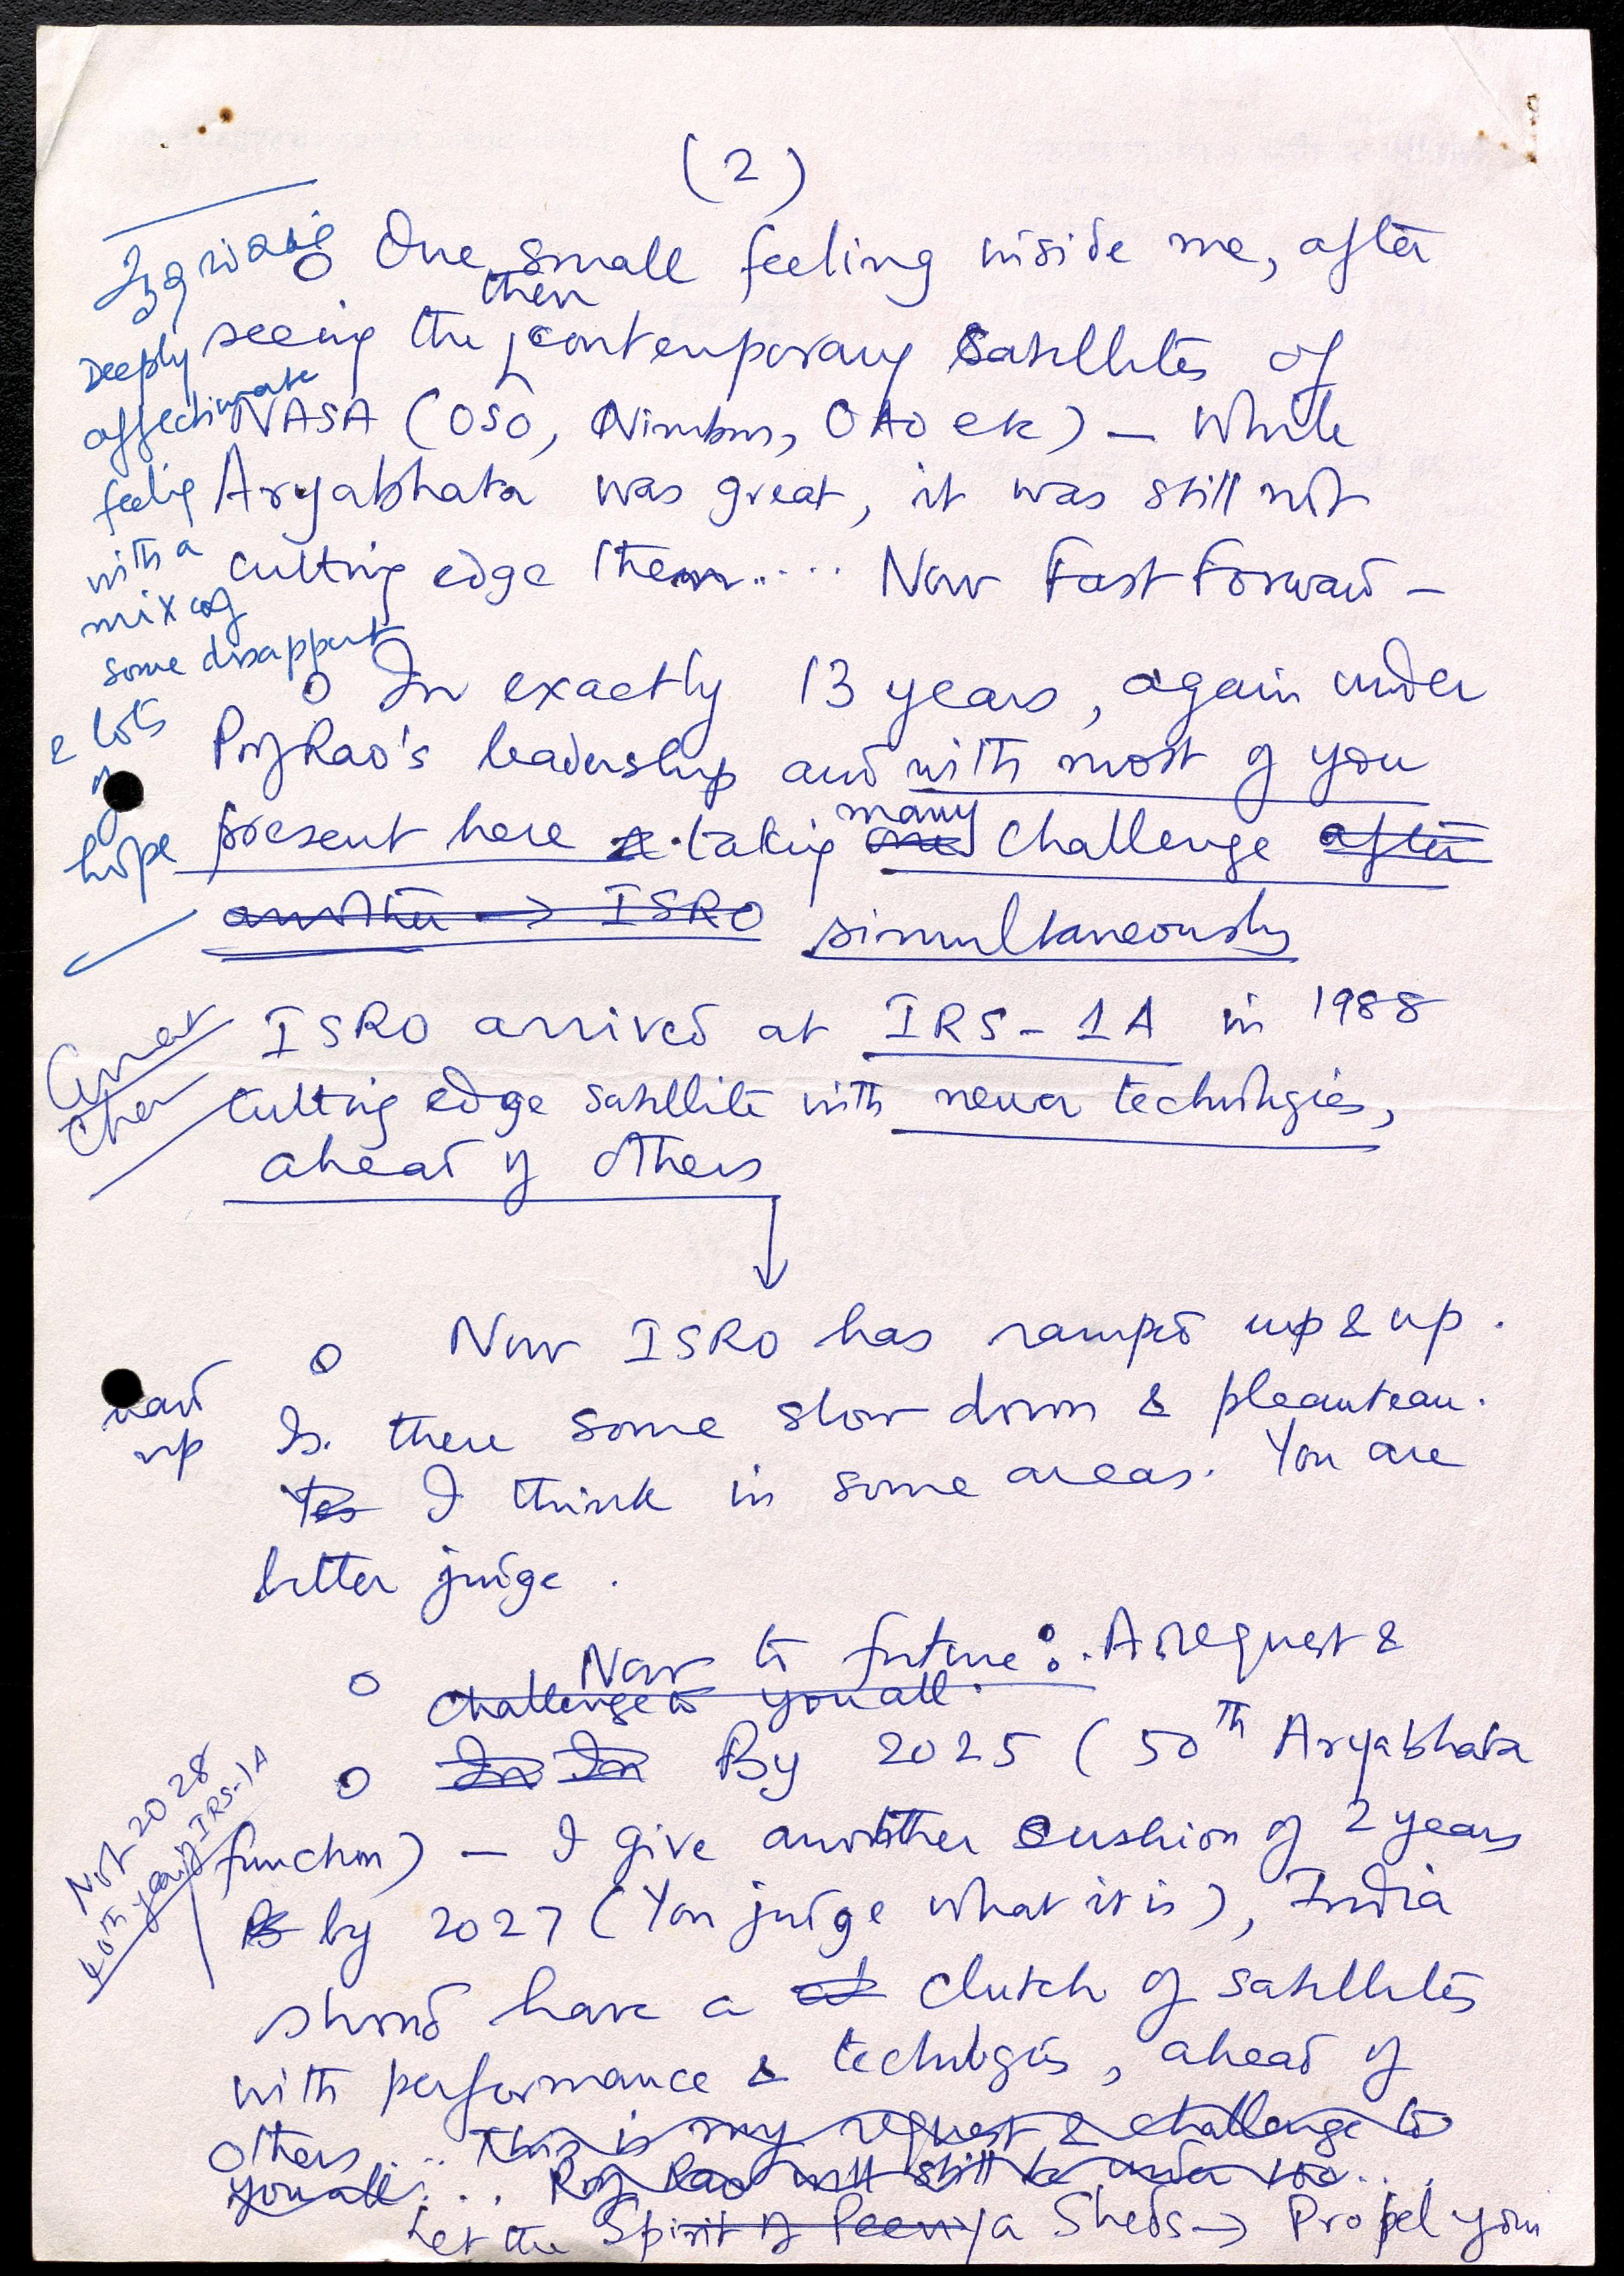 (2)
o One small feeling inside me, after
seeing the then contemporary satellites of
NASA (OSO, Nimbus, OAO etc) — While
Aryabhata was great, it was still not
cutting edge then..... Now Fast Forward —
Deeply
affectionate
feeling
with a
mix of
some disappoint
& lots
of
hope
o In exactly 13 years, again under
Prof Rao's leadership and with most of you
present here taking many one challenge after
another → ISRO simultaneously
ISRO arrived at IRS-1A in 1988
cutting edge satellite with newer technologies,
ahead of others
o Now ISRO has ramped up & up.
Is there some slow down & pleauteau.
Yes I think in some areas. You are
better judge.
up
o Now to future: A request &
challenge to you all.
o In In By 2025 (50th Aryabhata
function) — I give another cushion of 2 years
by 2027 (You judge what it is), India
should have a clutch of satellites
with performance & technologies, ahead of
others.... This is my request & challenge to
you all.... Prof Rao will still be under 100....
Let the Spirit of Peenya Sheds → Propel you
Not 2028
40th year of IRS-1A